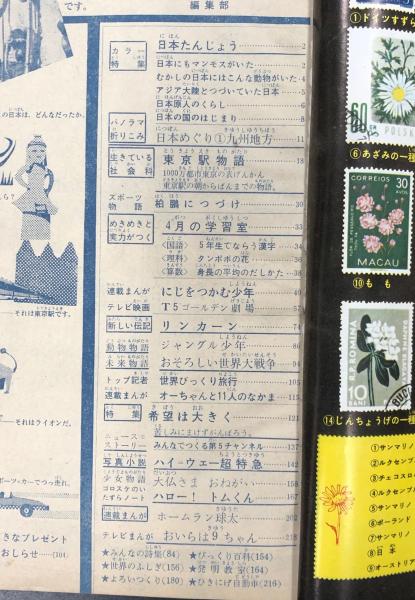 編集部
です。
の日本は、どんなだったか。
それは東京駅です。
それはライオンだ。
きなプレゼント
おしらせ……(104)
カラー特集
日本たんじょう……2
日本にもマンモスがいた……2
むかしの日本にはこんな動物がいた…4
アジア大陸とつづいていた日本……5
日本原人のくらし……6
日本の国のはじまり……8
パノラマ折りこみ
日本めぐり①九州地方……11
生きている社会科
東京駅物語……18
1000万都市東京の表げんかん
東京駅の朝からばんまでの物語。
スポーツ物語
柏鵬につづけ……30
めきめきと実力がつく
4月の学習室……33
〈国語〉 5年生でならう漢字……34
〈理科〉 タンポポの花……36
〈算数〉 身長の平均のだしかた……38
連載まんが
にじをつかむ少年……40
テレビ映画
T5ゴールデン劇場……57
新しい伝記
リンカーン……74
動物物語
ジャングル少年……86
未来物語
おそろしい世界大戦争……95
トップ記者
世界びっくり旅行……105
連載まんが
オーちゃんと11人のなかま……115
特集
希望は大きく……121
苦しみにまけずがんばろう。
ニュースストーリー
みんなでつくる第5チャンネル……137
写真小説
ハイ・ウェー超特急……142
少女物語
大仏さま おねがい……158
コロスケのいたずらノート
ハロー！ トムくん……167
連載まんが
ホームラン球太……202
テレビまんが
おいらは9ちゃん……218
★みんなの詩集(84) ★びっくり百科(154)
★世界のふしぎ(156) ★発明教室(164)
★よろいつくり(180) ★ひきにげ自動車(216)
①ドイツすずら
60
POLSKA
⑥あざみの一種
CORREIOS
30
AVOS
MACAU
⑩もも
R.P.ROMINA
10
BANI
BUC
⑭じんちょうげの一種
①サンマリノ
②ルクセンブ
③チェコスロ
④ルクセンブ
⑤サンマリノ
⑥ポーランド
⑦サンマリノ
⑧日本
⑨オーストリア